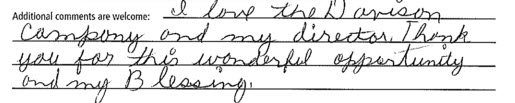 Additional comments are welcome: I love the Davison
Campony and my director. Thank
you for this wonderful opportunity
and my Blessing.